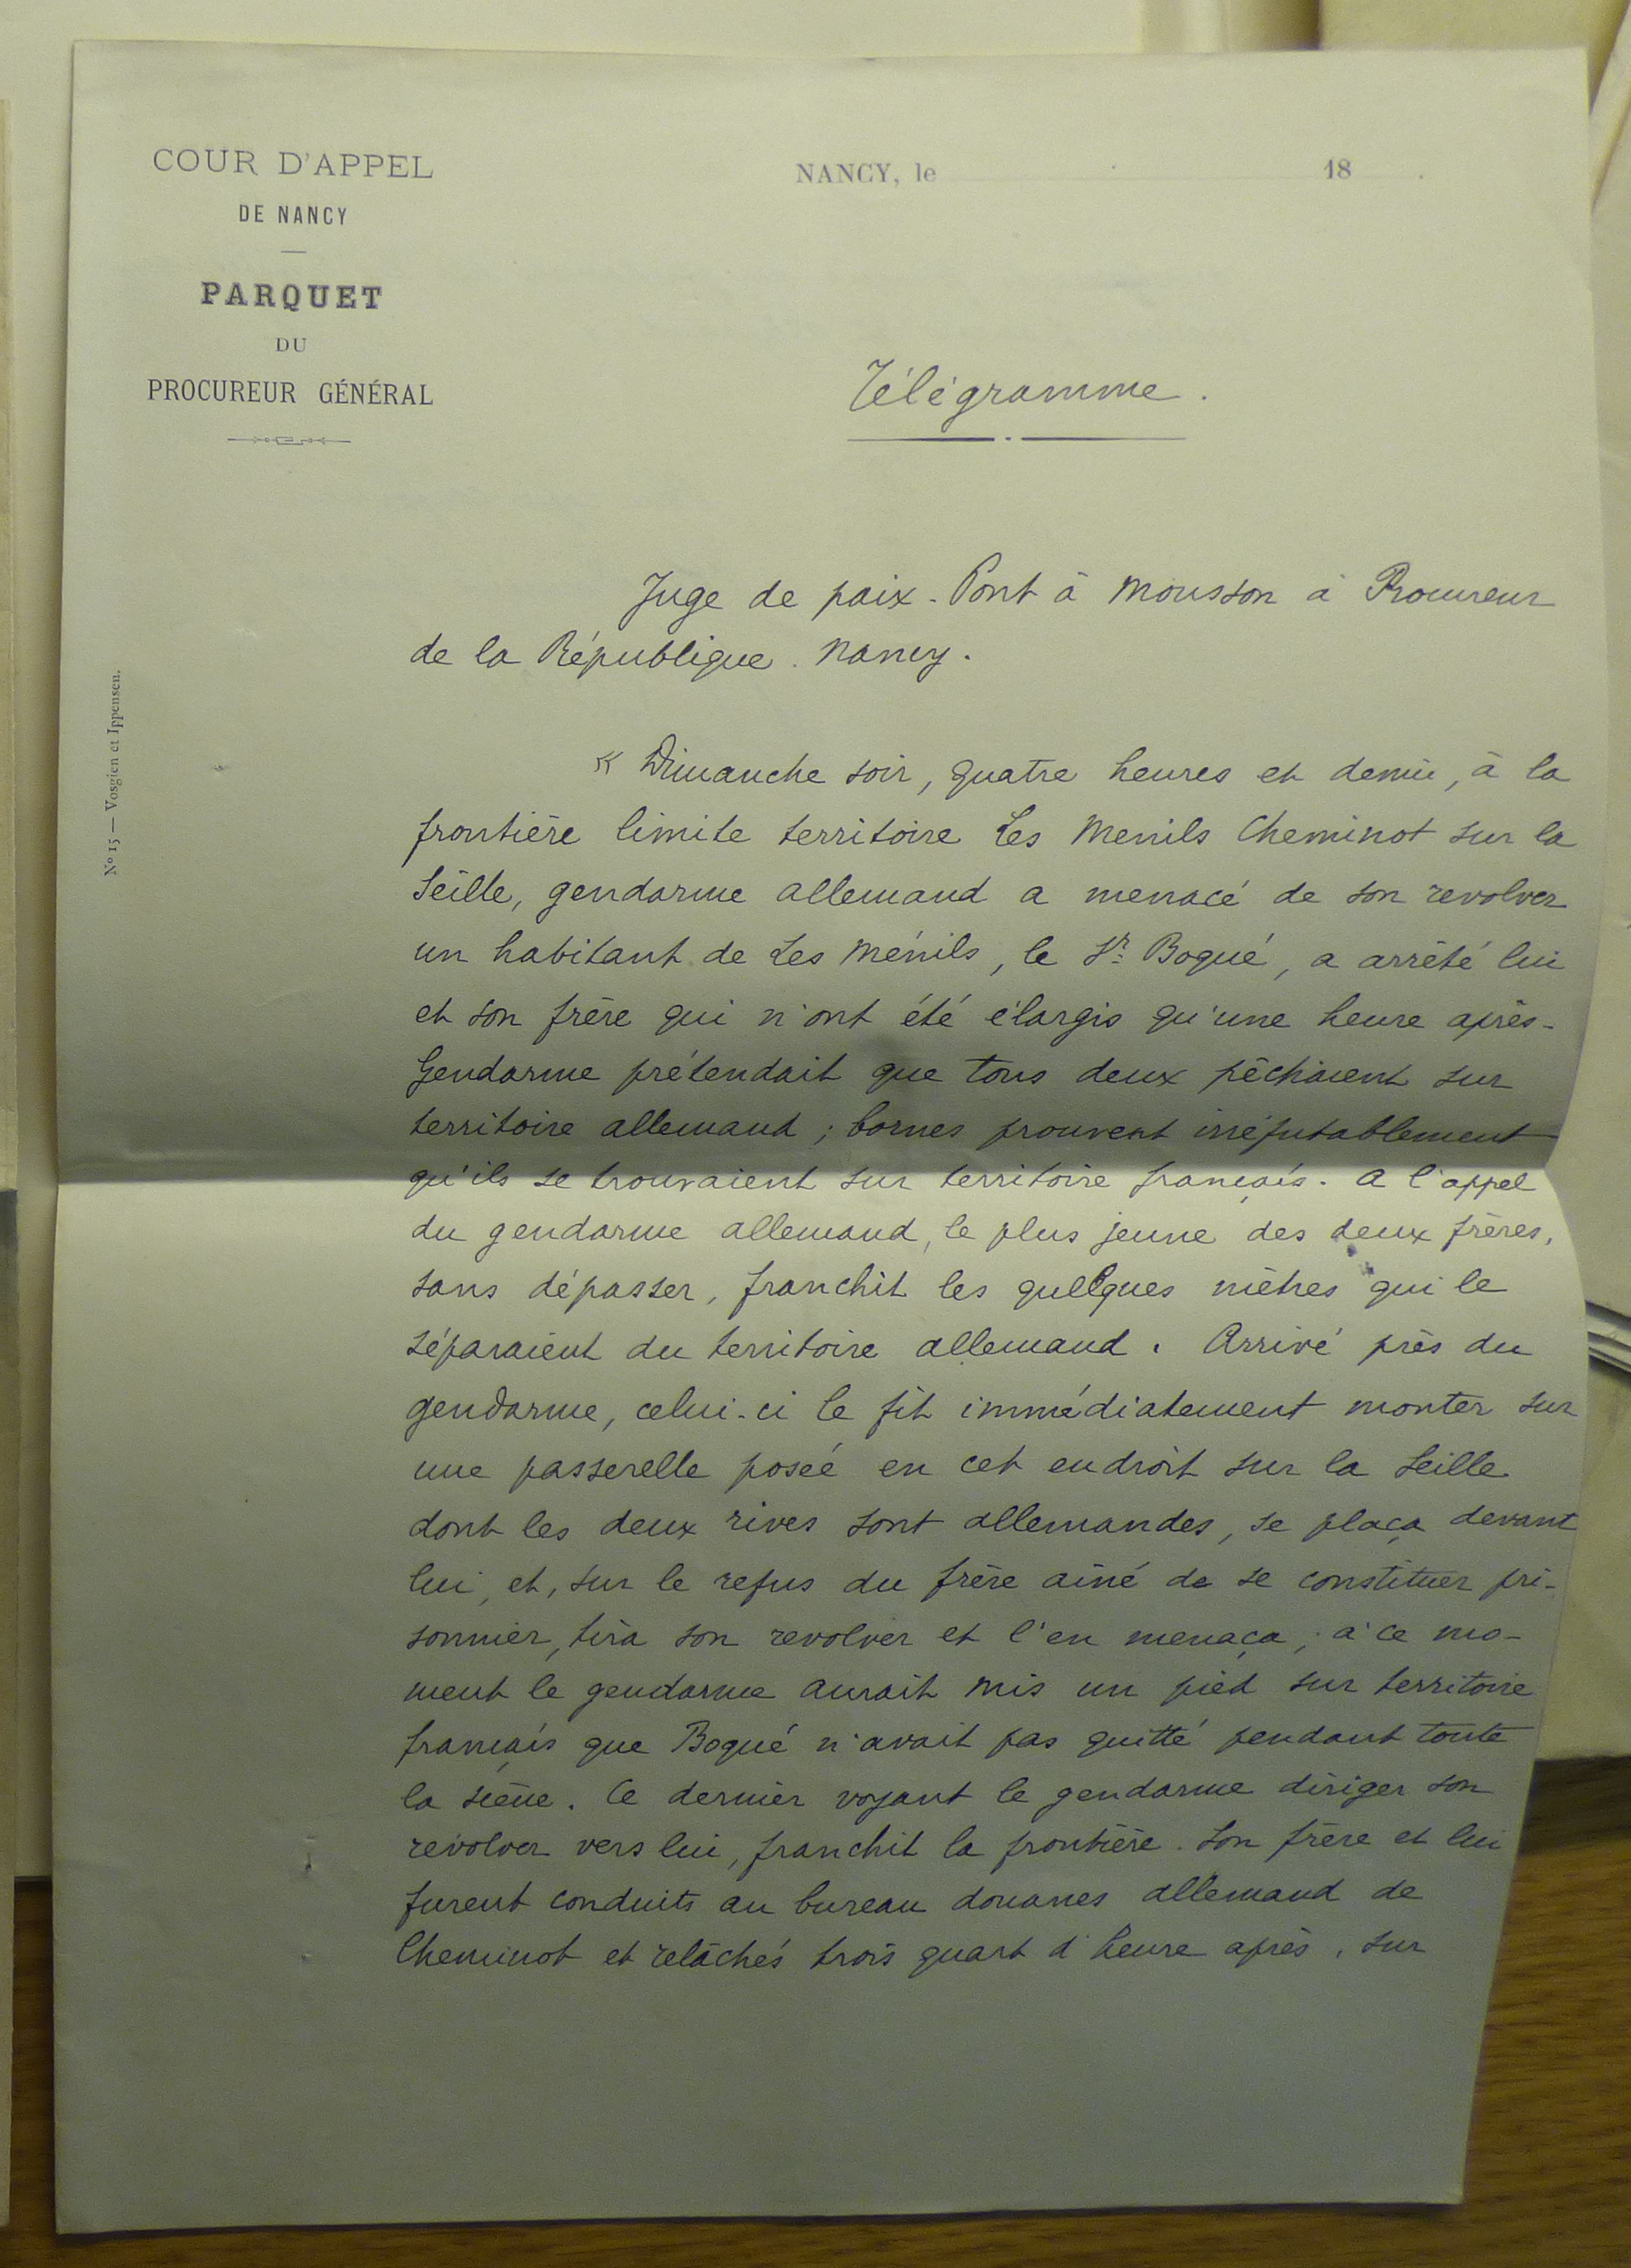 COUR D'APPEL
DE NANCY
PARQUET
DU
PROCUREUR GÉNÉRAL
NANCY, le 18 .
N° 15 — Vosgien et Ippensen.
Télégramme.
Juge de paix. Pont à Mousson à Procureur
de la République. Nancy.
« Dimanche soir, quatre heures et demie, à la
frontière limite territoire Les Menils Cheminot sur la
Seille, gendarme allemand a menacé de son revolver
un habitant de Les Ménils, le Sr Bogué, a arrêté lui
et son frère qui n'ont été élargis qu'une heure après-
Gendarme prétendait que tous deux pêchaient sur
territoire allemand ; bornes prouvent irréfutablement
qu'ils se trouvaient sur territoire français. A l'appel
du gendarme allemand, le plus jeune des deux frères,
sans dépasser, franchit les quelques mètres qui le
séparaient du territoire allemand. Arrivé près du
gendarme, celui-ci le fit immédiatement monter sur
une passerelle posée en cet endroit sur la Seille
dont les deux rives sont allemandes, se plaça devant
lui, et, sur le refus du frère ainé de se constituer pri-
sonnier, tira son revolver et l'en menaça ; à ce mo-
ment le gendarme aurait mis un pied sur territoire
français que Bogué n'avait pas quitté pendant toute
la scène. Ce dernier voyant le gendarme diriger son
revolver vers lui, franchit la frontière. Son frère et lui
furent conduits au bureau douanes allemand de
Cheminot et relâchés trois quart d'heure après, sur